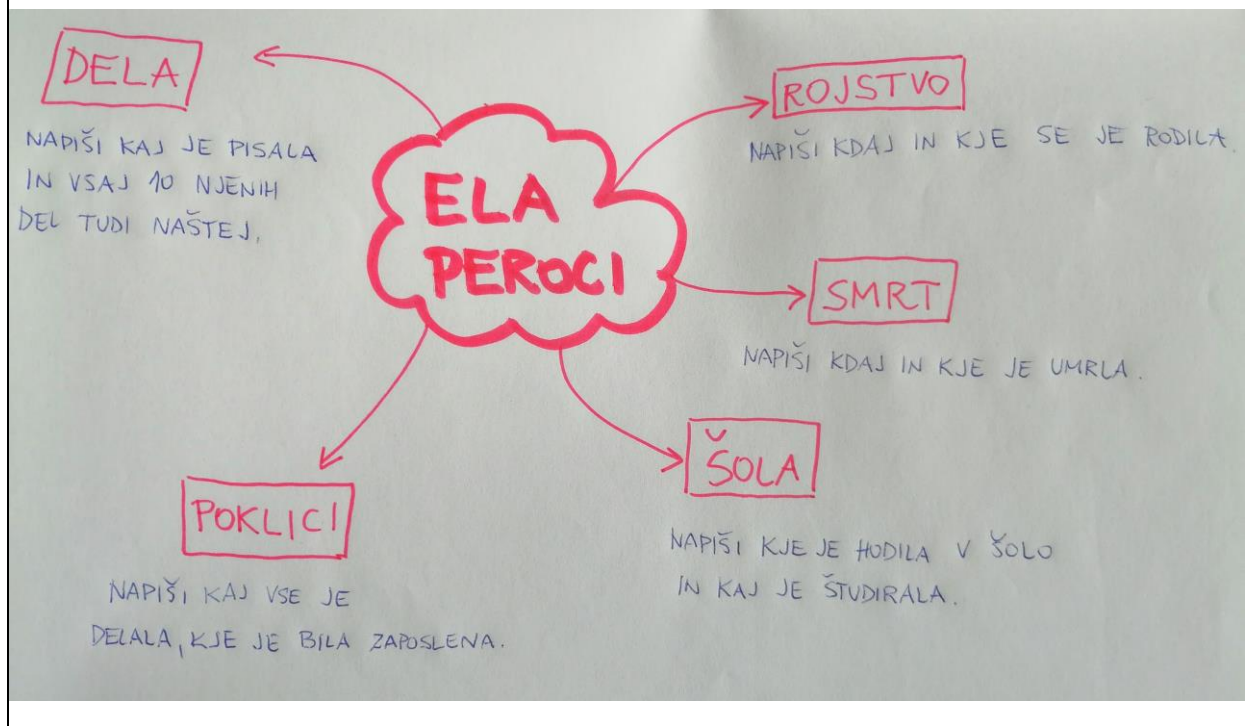 DELA
NAPIŠI KAJ JE PISALA
IN VSAJ 10 NJENIH
DEL TUDI NAŠTEJ.
ELA
PEROCI
ROJSTVO
NAPIŠI KDAJ IN KJE SE JE RODILA.
SMRT
NAPIŠI KDAJ IN KJE JE UMRLA.
ŠOLA
NAPIŠI KJE JE HODILA V ŠOLO
IN KAJ JE ŠTUDIRALA.
POKLICI
NAPIŠI KAJ VSE JE
DELALA, KJE JE BILA ZAPOSLENA.